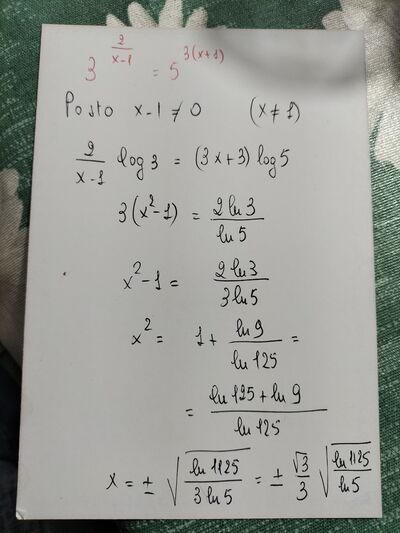 3^(2/(x-1)) = 5^(3(x+1))
Posto x-1 ≠ 0 (x ≠ 1)
2/(x-1) log 3 = (3x+3) log 5
3(x²-1) = 2 ln 3 / ln 5
x²-1 = 2 ln 3 / 3 ln 5
x² = 1 + ln 9 / ln 125 =
= (ln 125 + ln 9) / ln 125
x = ± √(ln 1125 / 3 ln 5) = ± √3/3 √(ln 1125 / ln 5)